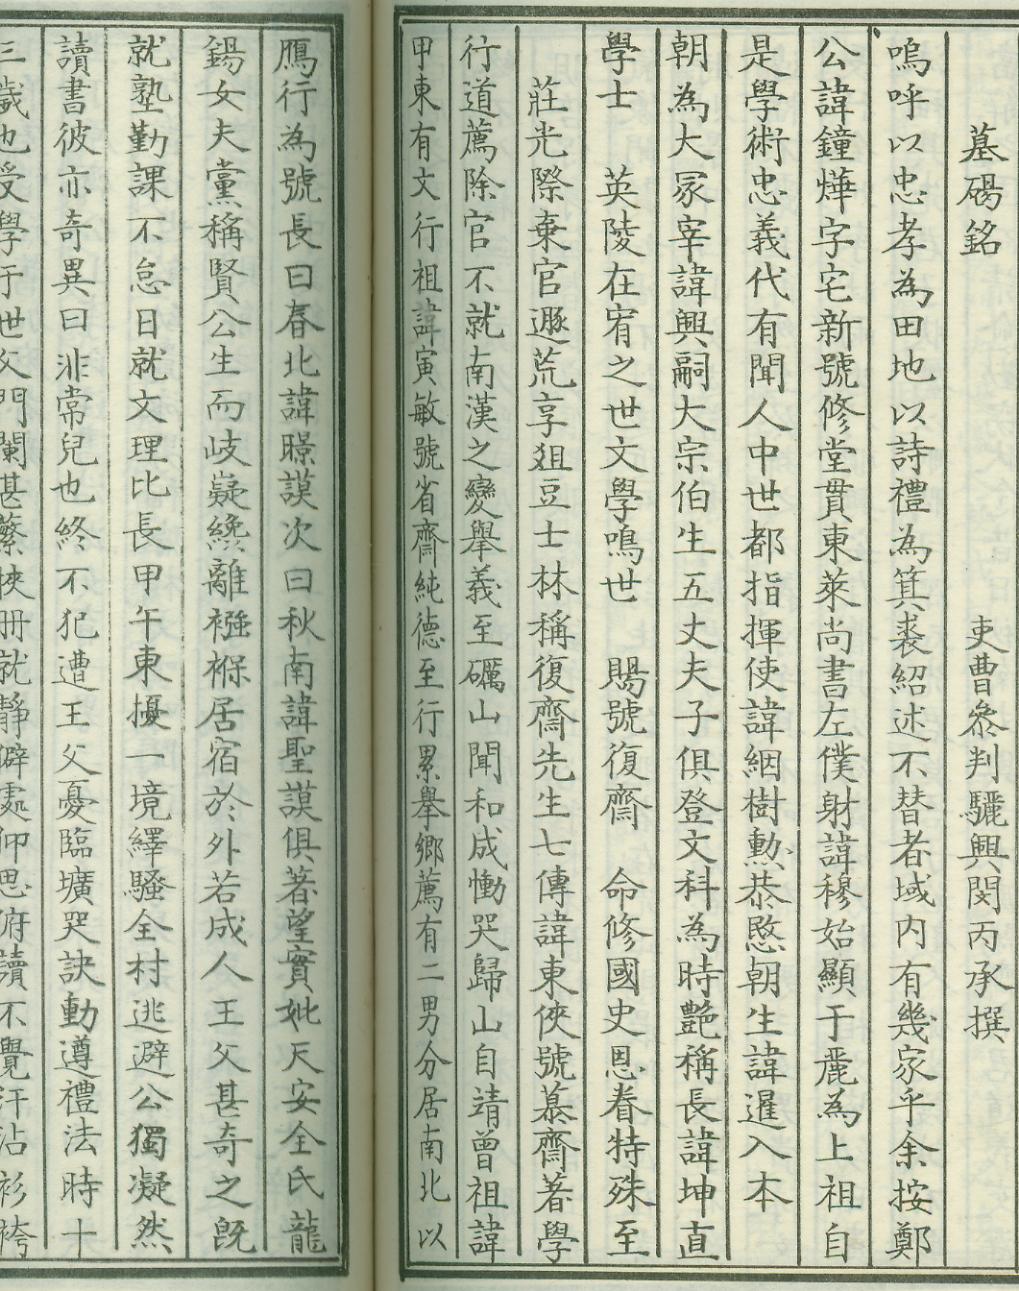 墓碣銘 吏曹參判驪興閔丙承撰
嗚呼以忠孝為田地以詩禮為箕裘紹述不替者域内有幾家乎余按鄭
公諱鐘燁字宅新號修堂貫東萊尚書左僕射諱穆始顯于麗為上祖自
是學術忠義代有聞人中世都指揮使諱絪樹勳恭愍朝生諱暹入本
朝為大冢宰諱興嗣大宗伯生五丈夫子俱登文科為時艶稱長諱坤直
學士 英陵在宥之世文學鳴世 賜號復齋 命修國史恩眷特殊至
莊光際棄官遯荒享爼豆士林稱復齋先生七傳諱東俠號慕齋著學
行道薦除官不就南漢之變擧義至礪山聞和成慟哭歸山自靖曾祖諱
甲東有文行祖諱寅敏號省齋純德至行累擧鄉薦有二男分居南北以
鴈行為號長曰春北諱暻謨次曰秋南諱聖謨俱著望實妣天安全氏龍
錫女夫黨稱賢公生而岐嶷纔離襁褓居宿於外若成人王父甚奇之既
就塾勤課不怠日就文理比長甲午東擾一境繹騷全村逃避公獨凝然
讀書彼亦奇異曰非常兒也終不犯遭王父憂臨壙哭訣動遵禮法時十
三歲也受學于世父門闌甚繁挾冊就靜僻處仰思俯讀不覺汗沾衫袴